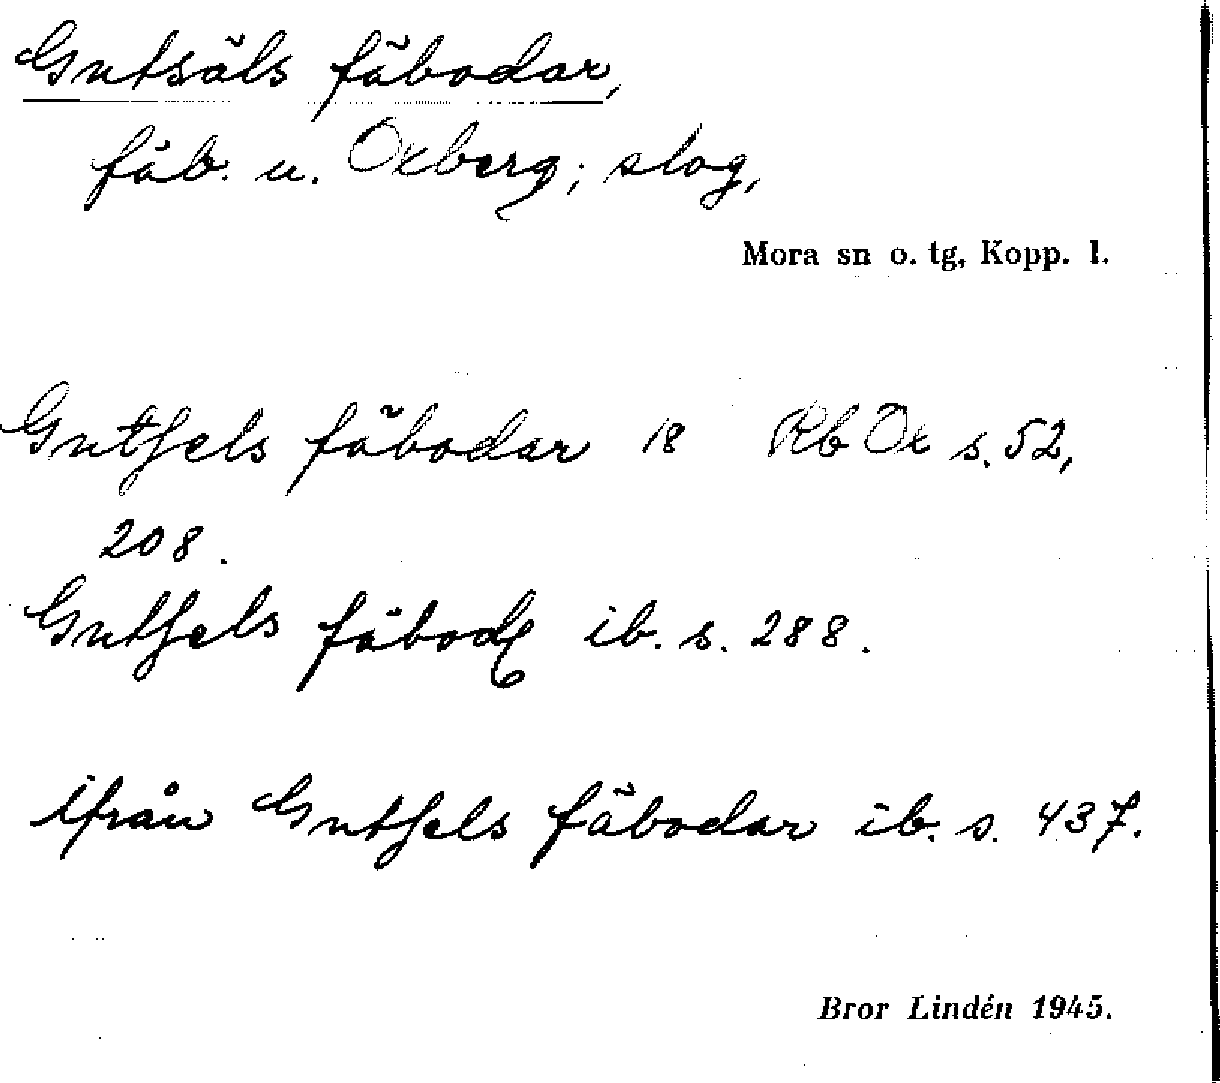 Gutsäls fäbodar,
fäb. u. Oxberg; slog,
Mora sn o. tg, Kopp. l.
Gutsels fäbodar 18 Rb Ox s. 52,
208.
Gutsels fäbod ib. s. 288.
ifrån Gutsels fäbodar ib. s. 437.
Bror Lindén 1945.